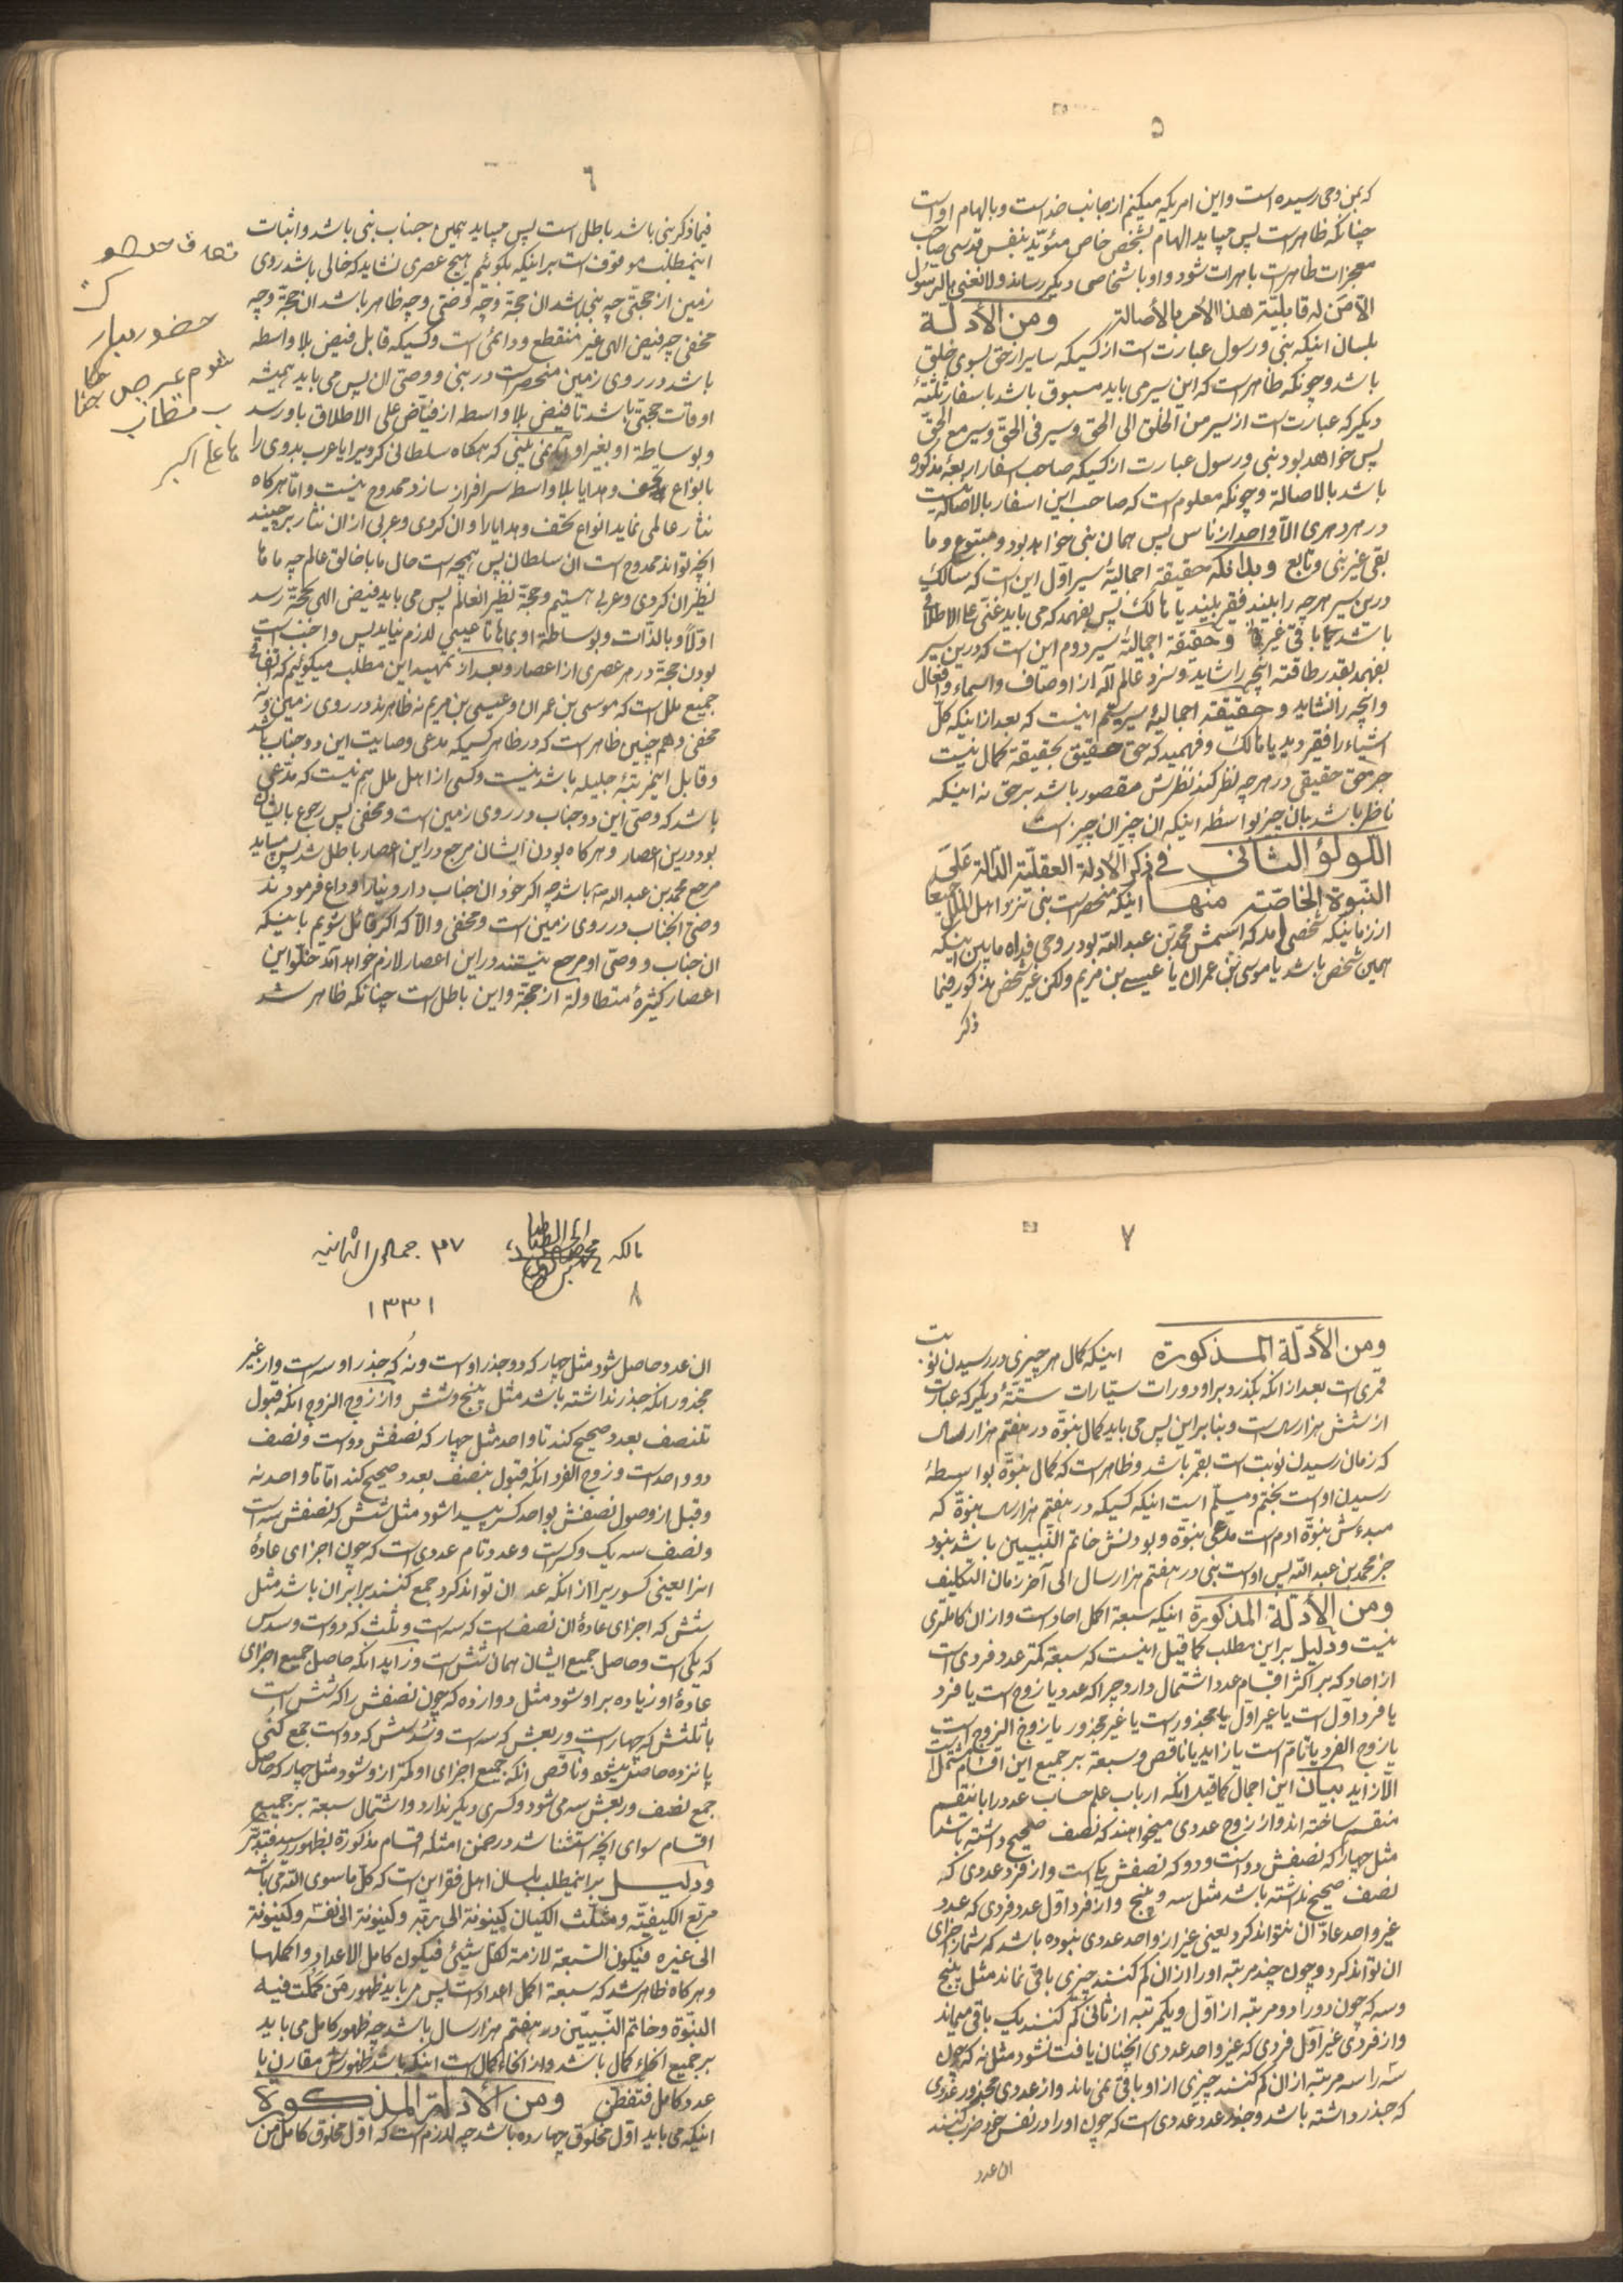 ٥
که بمن وحی رسیده است و این امریکه میکنم از جانب خداست و بالهام اواست
چنانکه ظاهر است پس میباید الهام بشخص خاص مؤید بنفس قدسی صاحب
معجزات ظاهرات باهرات شود و او باشخاص دیگر رساند ولا نعنی بالرسول
الا من له قابلیة هذا الأمر بالأصالة ومن الأدلة
بلسان اینکه نبی و رسول عبارتست از کسیکه سایر از حق بسوی خلق
باشد و چونکه ظاهر است که این سیر می باید مسبوق باشد باسفار ثلثهٔ
دیگر که عبارت است از سیر من الخلق الی الحق و سیر فی الحق و سیر مع الحق
پس خواهد بود نبی و رسول عبارت از کسیکه صاحب اسفار اربعهٔ مذکوره
باشد بالاصالة و چونکه معلوم است که صاحب این اسفار بالاصاله نیست
در هر دهری الا واحد از ناس پس همان نبی خواهد بود و متبوع و ما
بقی غیر نبی و تابع و بدانکه حقیقة اجمالیهٔ سیر اول این است که سالک
درین سیر هر چه را بیند فقیر بیند یا هالک پس بفهمد که می باید غنی علی الاطلاق
باشد یا باقی غیر فانی و حقیقة اجمالیهٔ سیر دوم این است که درین سیر
بفهمد بقدر طاقته آنچه را شاید و سزد عالم اله از اوصاف و اسماء و افعال
و آنچه را نشاید و حقیقة اجمالیهٔ سیر سیم اینست که بعد از اینکه کل
اشیاء را فقیر دید یا هالک و فهمید که حق حقیق بحقیقة کمال نیست
جز حق حقیقی در هر چه نظر کند نظرش مقصور باشد بر حق نه اینکه
ناظر باشد بان چیز بواسطه اینکه ان چیز ان چیز است
اللؤلؤ الثانی فی ذکر الأدلة العقلیّة الدالة علی
النبوة الخاصّة منها اینکه منحصر است نبی نزد اهل الملل جمیعا
از زمانیکه شخصی آمد که اسمش محمد بن عبد الله بود روحی فداه ما بین اینکه
همین شخص باشد یا موسی بن عمران یا عیسی بن مریم ولکن غیر شخص مذکور فیما
ذکر
٦
فیما ذکر نبی باشد باطل است پس میباید همین جناب نبی باشد و اثبات
اینمطلب موقوف است بر اینکه بگوئیم هیچ عصری نشاید که خالی باشد روی
زمین از حجتی چه نبی باشد ان حجة و چه وصی و چه ظاهر باشد ان حجة و چه
مخفی چه فیض الهی غیر منقطع و دائمی است و کسیکه قابل فیض بلا واسطه
باشد در روی زمین منحصر است در نبی و وصی ان پس می باید همیشه
اوقات حجتی باشد تا فیض بلا واسطه از فیاض علی الاطلاق باو رسد
و بوساطة او بغیر او آیا نمی بینی که هرگاه سلطانی کردیرا یا عرب بدوی را
بانواع تحف و هدایا بلا واسطه سرافراز سازد ممدوح نیست و اما هرگاه
نثار عالمی نماید انواع تحف و هدایا را و ان کردی و عربی از ان نثار برچیند
آنچه تواند ممدوح است ان سلطان پس همچه است حال ما با خالق عالم چه ماها
نظیر ان کردی و عربی هستیم و حجة نظیر العالم پس می باید فیض الهی بحجة رسد
اولا و بالذات و بوساطة او بماها تا عیبی لازم نیاید پس واجب است
بودن حجة در هر عصری از اعصار و بعد از تمهید این مطلب میگوئیم که باتفاق
جمیع ملل است که موسی بن عمران و عیسی بن مریم نه ظاهرند در روی زمین و نه
مخفی و همچنین ظاهر است که در ظاهر کسیکه مدعی وصایت این دو جناب باشد
و قابل اینمرتبهٔ جلیله باشد نیست و کسی از اهل ملل هم نیست که مدعی
باشد که وصی این دو جناب در روی زمین است و مخفی پس رجوع بایشان
بود درین اعصار و هرگاه بودن ایشان مرجع در این اعصار باطل شد پس میباید
مرجع محمد بن عبد الله باشد چه اگر خود ان جناب دار دنیا را وداع فرمودند
وصی انجناب در روی زمین است و مخفی و الا که اگر قائل شویم باینکه
ان جناب و وصی او مرجع نیستند در این اعصار لازم خواهد آمد خلو این
اعصار کثیرهٔ متطاولة از حجة و این باطل است چنانکه ظاهر شد
حضور
٧
ومن الأدلّة المذکورة اینکه کمال هر چیزی در رسیدن نوبت
قمری است بعد از آنکه بگذرد بر او دورات سیّارات ستّهٔ دیگر که عبارت
از شش هزار سال است و بنا بر این پس می باید کمال نبوّة در هفتم هزار سال
که زمان رسیدن نوبت است بقمر باشد و ظاهر است که کمال نبوّة بواسطهٔ
رسیدن او است بختم و مسلّم است اینکه کسیکه در هفتم هزار سال نبوّة که
مبدءش نبوّة ادم است مدعی نبوّة و بودنش خاتم النّبیین باشد نبود
جز محمد بن عبد الله پس اوست نبی در هفتم هزار سال الی آخر زمان التکلیف
ومن الأدلّة المذکورة اینکه سبعة اکمل احاد است و از ان کاملتری
نیست و دلیل بر این مطلب کما قیل اینست که سبعة کمتر عدد فردی است
از احاد که بر اکثر اقسام عدد اشتمال دارد چرا که عدد یا زوج است یا فرد
یا فرد اول است یا غیر اول یا مجذور است یا غیر مجذور یا زوج الزوج است
یا زوج الفرد یا تامّ است یا زاید یا ناقص و سبعة بر جمیع این اقسام مشتمل است
الا زاید بیان این اجمال کما قیل آنکه ارباب علم حساب عدد را بانقسم
منقسم ساخته اند و از زوج عددی میخواهند که نصف صحیح داشته باشد
مثل چهار که نصفش دو است و دو که نصفش یک است و از فرد عددی که
نصف صحیح نداشته باشد مثل سه و پنج و از فرد اول عدد فردی که عدد
غیر واحد عاد ان نتواند کرد یعنی غیر از واحد عددی نبوده باشد که شمار اجزای
ان تواند کرد و چون چند مرتبه او را از ان کم کنند چیزی باقی نماند مثل پنج
و سه که چون دو را دو مرتبه از اول و یکمرتبه از ثانی کم کنند یک باقی میماند
و از فردی غیر اول فردی که غیر واحد عددی انچنان یافت نشود مثل نه که چون
سه را سه مرتبه از ان کم کنند چیزی از او باقی نمی ماند و از عددی مجذور عددی
که جذر داشته باشد و جذر عدد عددی است که چون او را در نفس خود ضرب کنند
ان عدد
مالکه
٢٧ جمادی الثانیه
١٣٣١
٨
ان عدد حاصل شود مثل چهار که دو جذر اوست و نه که جذر او سه است و از غیر
مجذور آنکه جذر نداشته باشد مثل پنج و شش و از زوج الزوج آنکه قبول
تنصف بعدد صحیح کند تا واحد مثل چهار که نصفش دو است و نصف
دو واحد است و زوج الفرد آنکه قبول بنصف بعدد صحیح کند اما تا واحد نه
و قبل از وصول نصفش بواحد کسر پیدا شود مثل شش که نصفش سه است
و نصف سه یک و کسر است و عدد تام عددی است که چون اجزای عادهٔ
انرا یعنی کسوریرا از آنکه عد ان تواند کرد جمع کنند برابر ان باشد مثل
شش که اجزای عادهٔ ان نصف است که سه است و ثلث که دو است و سدس
که یکی است و حاصل جمیع ایشان همان شش است و زاید آنکه حاصل جمیع اجزای
عادهٔ او زیاده بر او شود مثل دوازده که چون نصفش را که شش است
با ثلثش که چهار است و ربعش که سه است و سدسش که دو است جمع کنی
پانزده حاصل میشود و ناقص آنکه جمیع اجزای او کمتر از او شود مثل چهار که حاصل
جمع نصف و ربعش سه می شود و کسری دیگر ندارد و اشتمال سبعة بر جمیع
اقسام سوای آنچه استثنا شد در ضمن امثله اقسام مذکورة بظهور رسید فتدبّر
ودلیل بر اینمطلب بلسان اهل فقر این است که کل ما سوی الله می باشد
مربّع الکیفیّة و مثلّث الکیان کینونة الی ربّه و کینونة الی نفسه و کینونة
الی غیره فیکون السّبعة لازمة لکل شیئ فیکون کامل الاعداد و اکملها
و هرگاه ظاهر شد که سبعة اکمل اعداد است پس می باید ظهور من کملت فیه
النبّوة و خاتم النّبیین در هفتم هزار سال باشد چه ظهور کامل می باید
بر جمیع انحاء کمال باشد و از انحاء کمال است اینکه باشد ظهورش مقارن با
عدد کامل فتفطّن ومن الأدلّة المذکورة
اینکه می باید اول مخلوق چهارده باشد چه لازم است که اول مخلوق کامل من